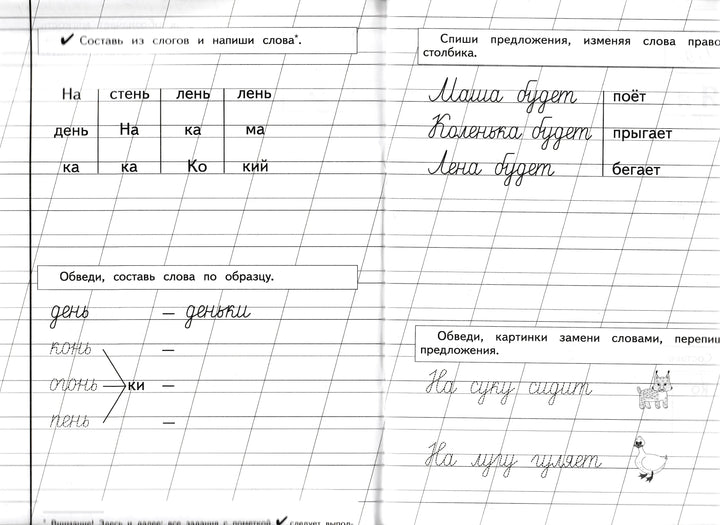 ✔ Составь из слогов и напиши слова*.
На стень лень лень
день На ка ма
ка ка Ко кий
Обведи, составь слова по образцу.
день — деньки
конь —
огонь — ки —
пень —
* Внимание! Здесь и далее: все задания с пометкой ✔ следует выпол-
Спиши предложения, изменяя слова право
столбика.
Маша будет поёт
Коленька будет прыгает
Лена будет бегает
Обведи, картинки замени словами, перепиш
предложения.
На суку сидит
На лугу гуляет